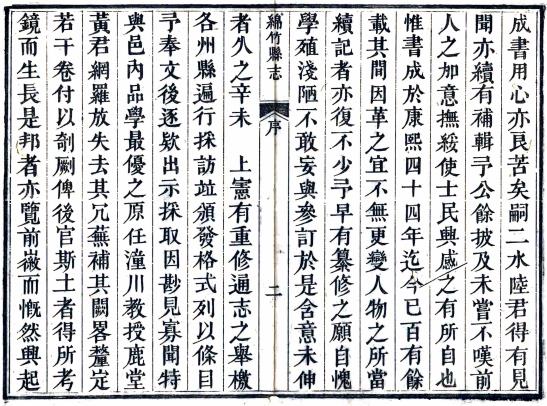 成書用心亦良苦矣嗣二水陸君得有見
聞亦續有補輯予公餘披及未嘗不嘆前
人之加意撫綏使士民興感之有所自也
惟書成於康熙四十四年迄今已百有餘
載其間因革之宜不無更變人物之所當
續記者亦復不少予早有纂修之願自愧
學殖淺陋不敢妄與參訂於是含意未伸
綿竹縣志
序
二
者久之辛未　上憲有重修通志之舉檄
各州縣遍行採訪竝頒發格式列以條目
予奉文後逐欵出示採取因尠見寡聞特
與邑內品學最優之原任潼川教授鹿堂
黃君網羅放失去其冗蕪補其闕畧釐定
若干卷付以剞劂俾後官斯土者得所考
鏡而生長是邦者亦覽前嶶而慨然興起